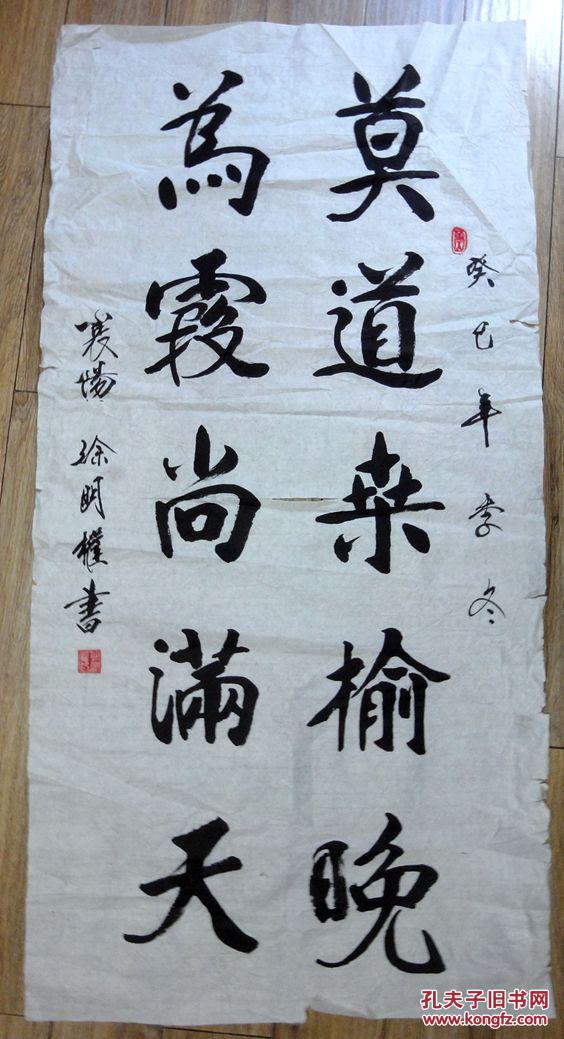 癸巳年季冬
莫道桑榆晚
為霞尚滿天
襄陽 徐明權書
孔夫子旧书网
www.kongfz.com